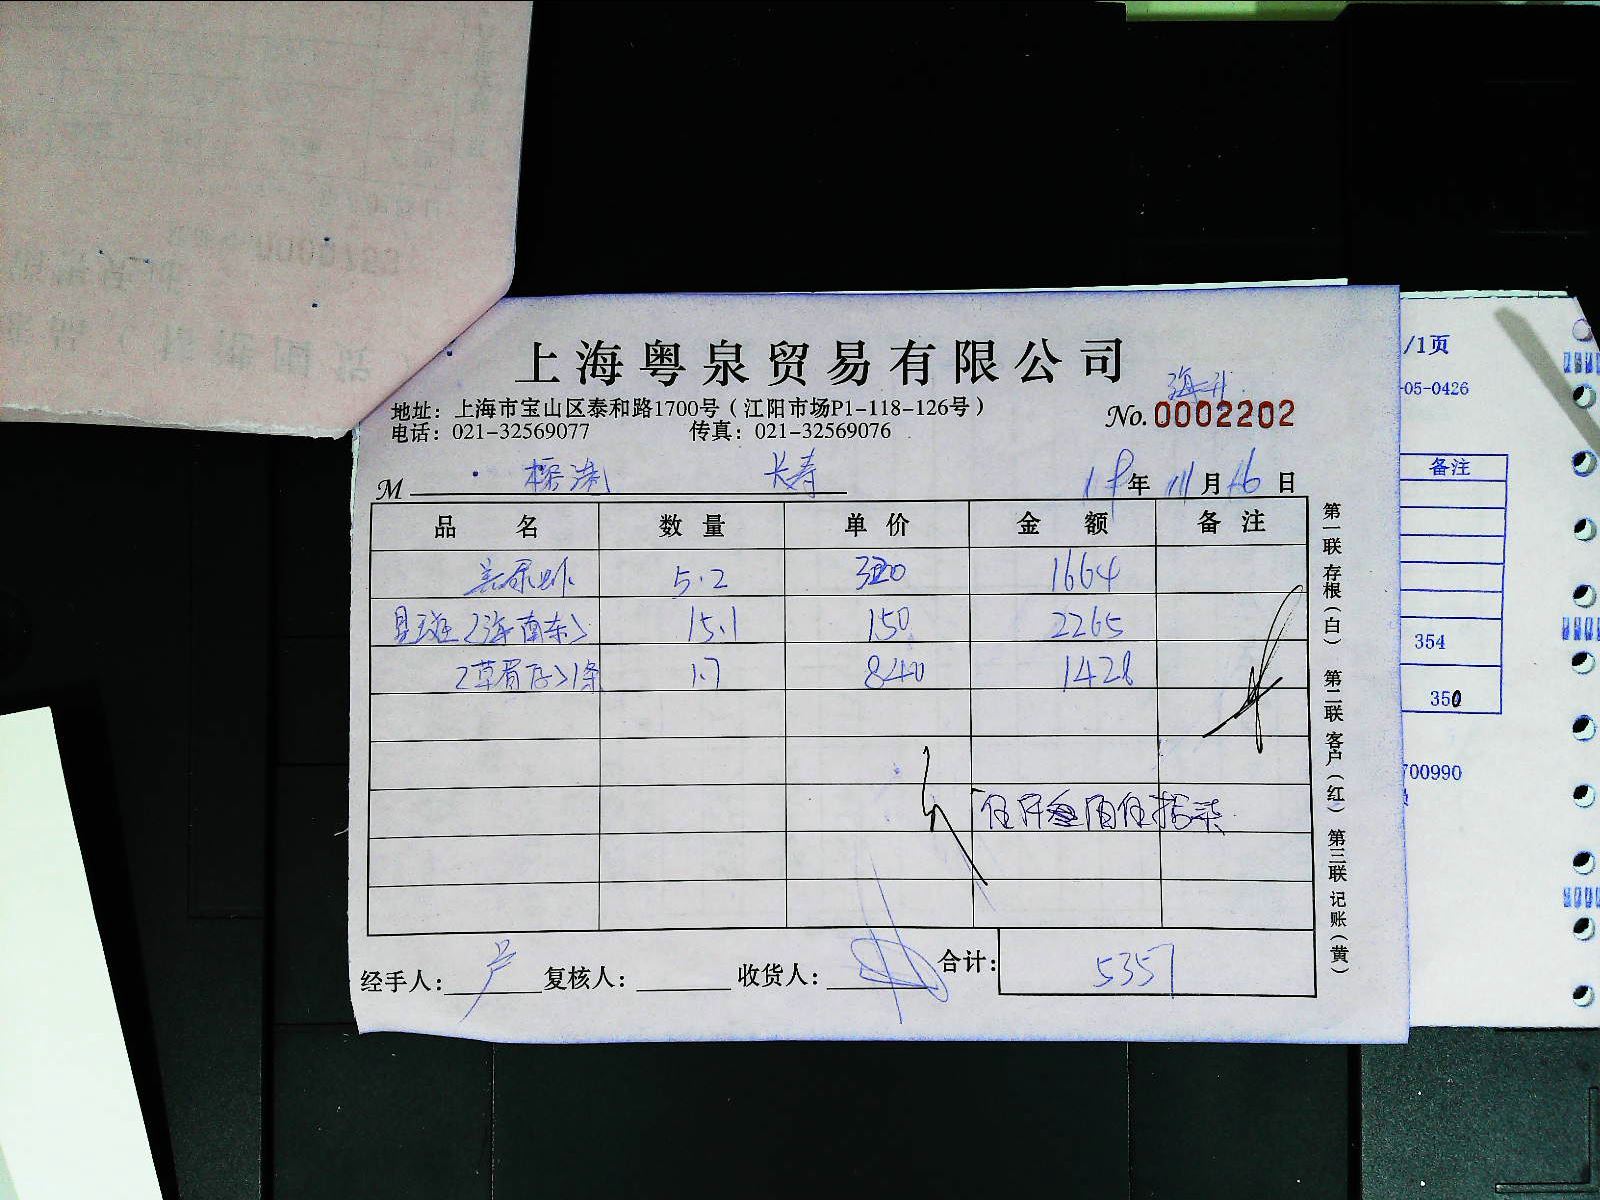 上海粤泉贸易有限公司
地址：上海市宝山区泰和路1700号（江阳市场P1-118-126号）
No. 0002202
电话：021-32569077 传真：021-32569076
M 长寿 19年 11月 16日
品名 数量 单价 金额 备注
5.2 320 1664
星斑<海南东> 15.1 150 2265
1条 1.7 840 1428
经手人： 卢 复核人： 收货人： 合计： 5357
第一联 存根（白） 第二联 客户（红） 第三联 记账（黄）
/1页
-05-0426
备注
354
350
700990